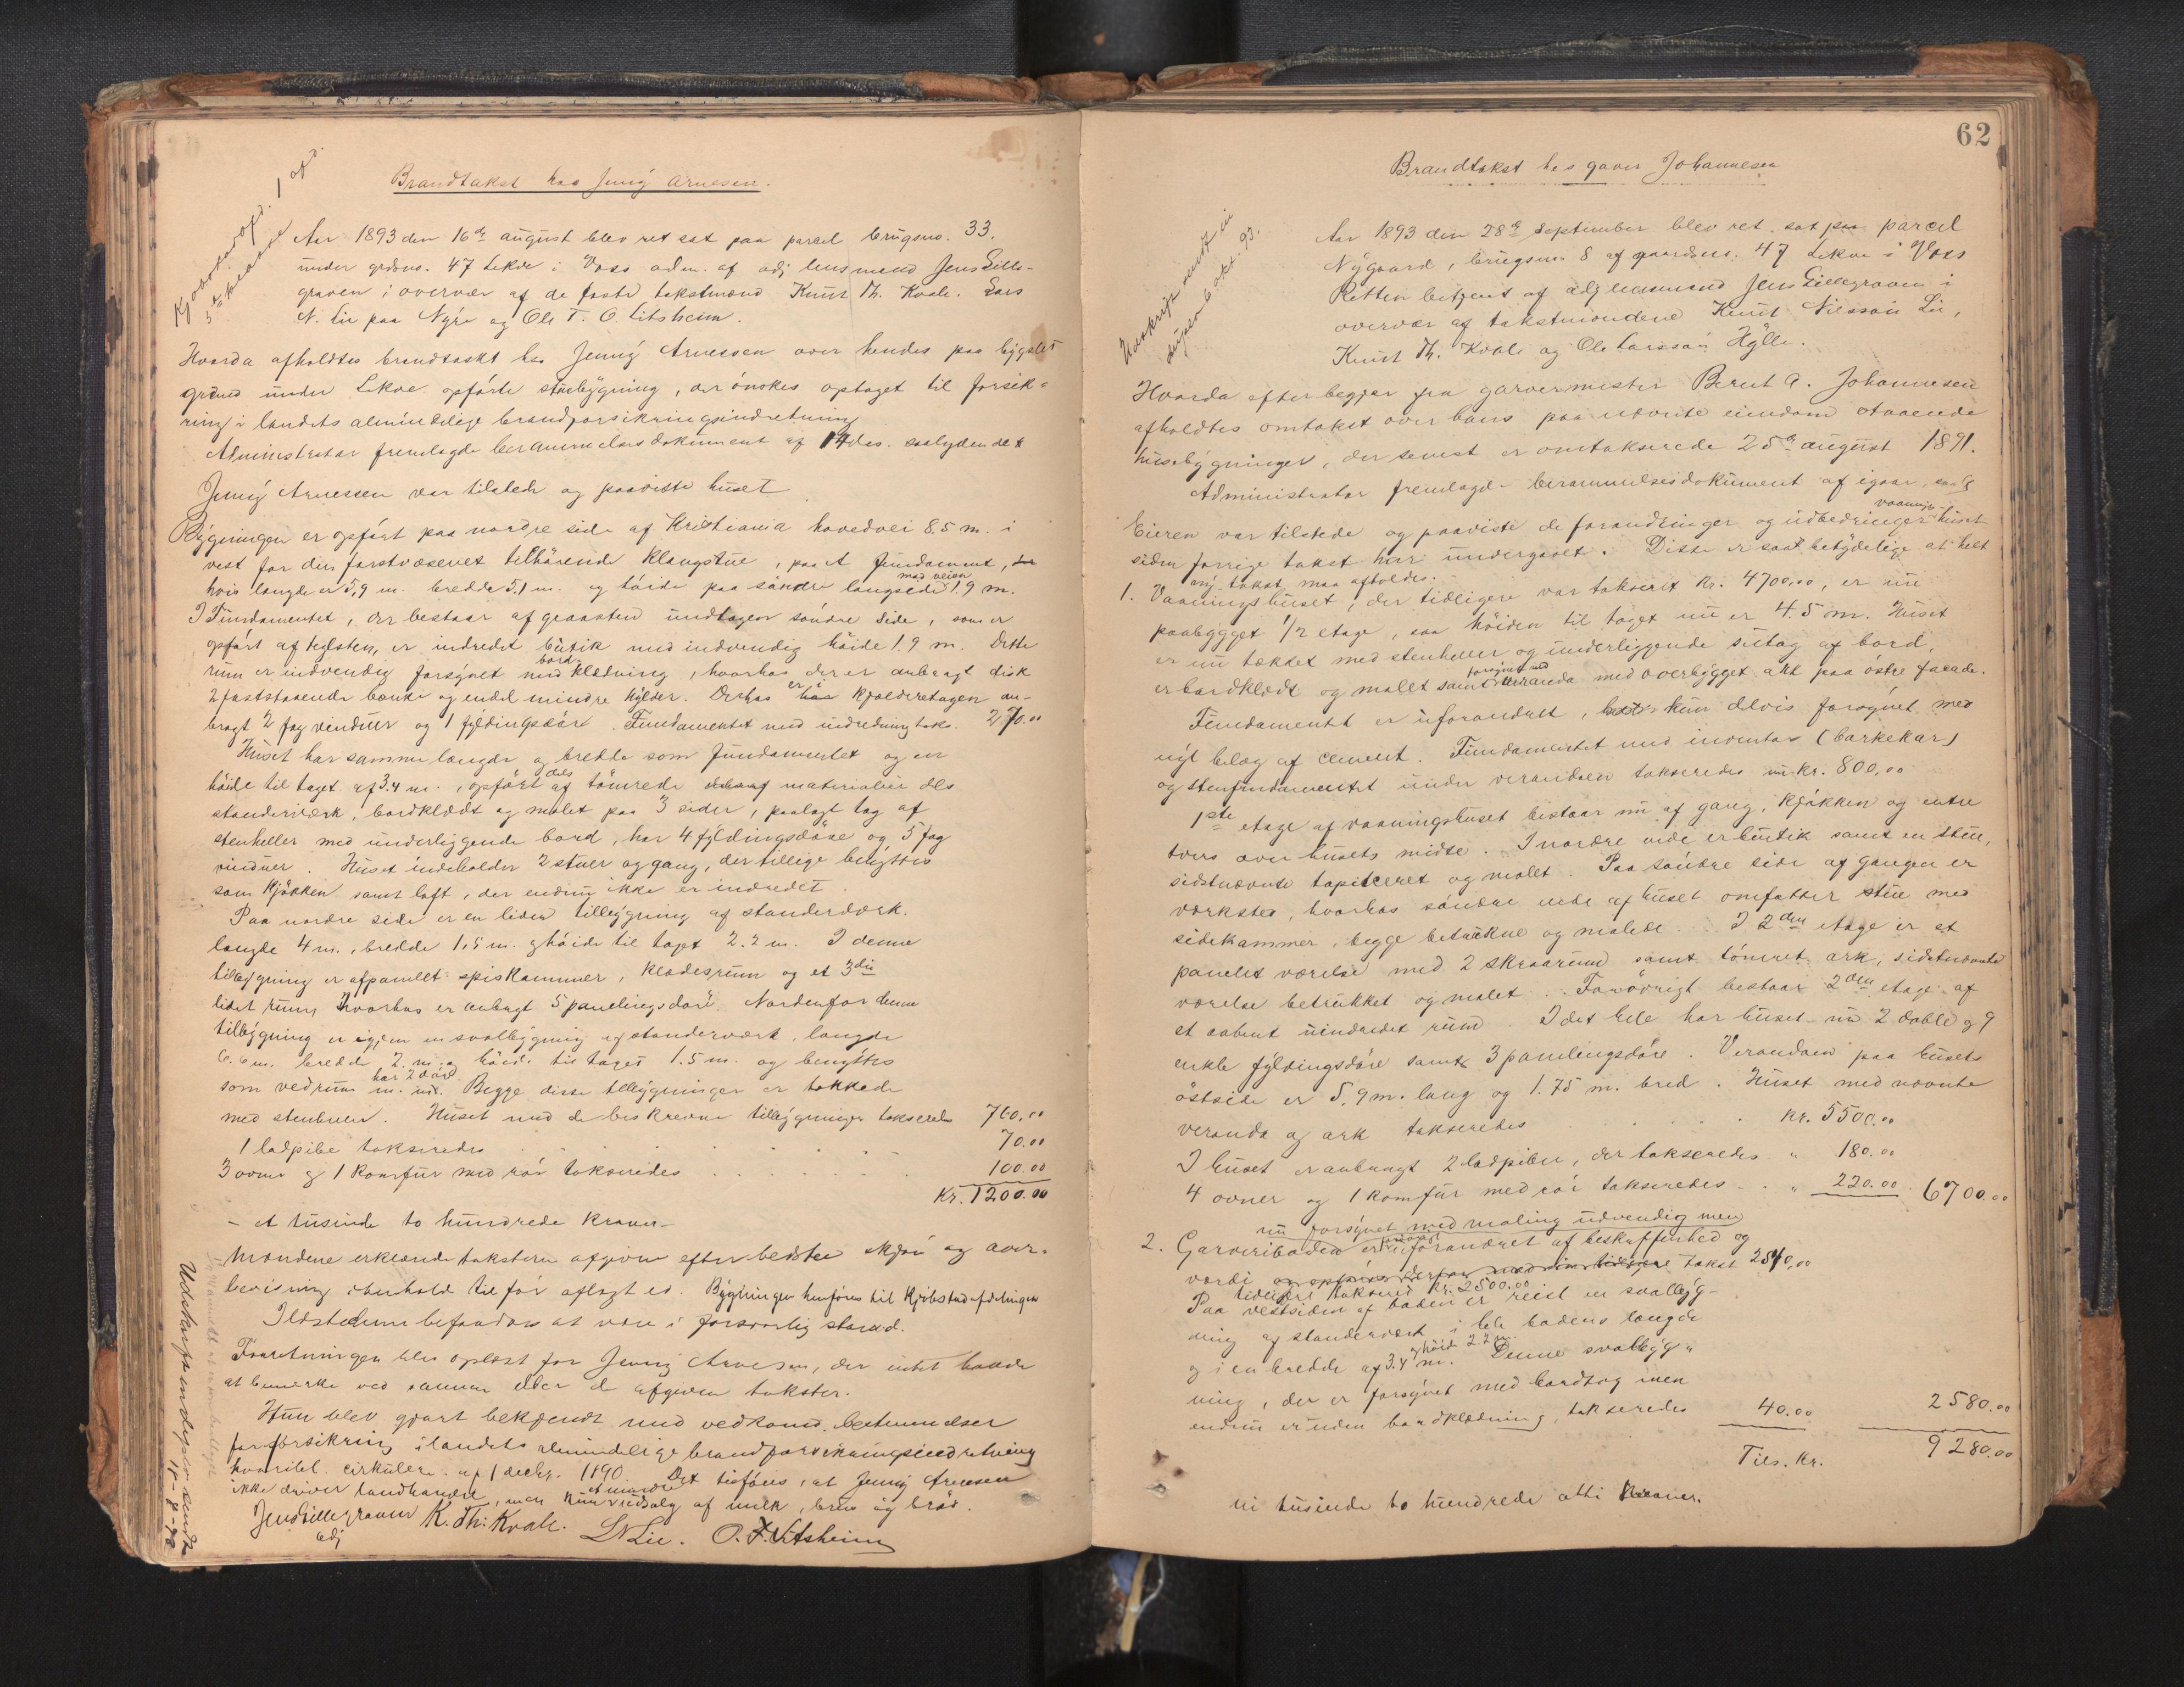 Brandtakst hos Jenny Arnesen.
Aar 1893 den 16de august blev ret sat paa parcel brugsno. 33.
under grdsno. 47 Lekve i Voss adm. af adj lensmand Jens Lille-
graven i overvær af de faste takstmænd Knut Th. Kvale. Lars
N. Lie paa Nyre og Ole T. O. Litsheim.
Hvorda afholdtes brandtaskt hos Jenny Arnessen over hendes paa bygslet
grund under Lekve opførte stuebygning, der ønskes optaget til forsik-
ring i landets almindelige brandforsikringsindretning
Administrator fremlagde berammelsesdokument af 14 ds. saalydende
Jenny Arnessen var tilstede og paaviste huset
Bygningen er opført paa nordre side af Kristiania hovedvei 85 m. i
vest for den forstvæsenet tilhørende Klangstue, paa et fundament,
hvis længde er 5,9 m. bredde 5,1 m. og høide paa søndre langside mod veien 1.9 m.
I Fundamentet, der bestaar af graasten undtagen søndre side, som er
opført af teglsten, er indredet butik med indvendig høide 1.9 m. Dette
rum er indvendig forsynet med bordklædning, hvorhos der er anbragt disk
2 faststaaende bænke og endel mindre hylder. Derhos er i kjælderetagen an-
bragt 2 fag vinduer og 1 fyldingsdør. Fundamentet med indredning taks. 270.00
Huset har samme længde og bredde som fundamentet og en
høide til taget af 3.4 m., opført dels af tømrede materialier dls
standerværk, bordklædt og malet paa 3 sider, paalagt tag af
stenheller med underliggende bord, har 4 fyldingsdøre og 5 fag
vinduer. Huset indeholder 2 stuer og gang, der tillige benyttes
som kjøkken samt loft, der endnu ikke er indredet.
Paa nordre side er en liden tilbygning af standerværk.
længde 4 m., bredde 1.5 m. og høide til taget 2.2 m. I denne
tilbygning er afpanelt spiskammer, klædesrum og et 3die
lidet rum, hvorhos er anbragt 5 panelingsdøre. Nordenfor denne
tilbygning er igjen en svalbygning af standerværk, længde
6.6 m. bredde 2. m. og høide til taget 1.5 m. og benyttes
som vedrum m. m. har 2 døre. Begge disse tilbygninger er tækkede
med stenheller. Huset med de beskrevne tilbygninger takseredes 760.00
1 ladpibe takseredes 70.00
3 ovne og 1 komfur med rør takseredes 100.00
Kr. 1200.00
- et tusinde to hundrede kroner -
Mændene erklærede taksten afgiven efter bedste skjøn og over-
bevisning i henhold til før aflagt ed. Bygningen henføres til Kjøbstadafdelingen
Ildstederne befandtes at være i forsvarlig stand.
Forretningen blev oplæst for Jenny Arnesen, der intet havde
at bemærke ved samme eller de afgivne takster.
Hun blev gjort bekjendt med vedkomd. bestemmelser
for forsikring i landets almindelige brandforsikringsindretning
hvoriblt. cirkulære af 1 decbr. 1890. Det tilføies, at Jenny Arnesen
ikke driver landhandel, men kun et mindre udsalg af melk, brus og brød.
Jens Lillegraven K. Th. Kvale. L N Lie. O. T. Litsheim
adj
Udskrift endeplo sendt
18-9-93
62
Brandtakst hos garver Johannesen
Udskrift sendt in
duplo 6 oktbr. 93.
Aar 1893 den 28de September blev ret sat paa parcel
Nygaard, brugsno. 8 af gaardsno. 47 Lekve i Voss
Retten betjent af adj lensmand Jens Lillegraven i
overvær af takstmændene Knut Nilssøn Lie,
Knut Th. Kvale og Ole Larssøn Hylle.
Hvorda efter begjær fra garvermester Bernt A. Johannesen
afholdtes omtakst over hans paa nævnte eiendom staaende
husebygninger, der senest er omtakserede 25de august 1891.
Administrator fremlagde berammelsesdokument af igaar,
Eieren var tilstede og paaviste de forandringer og udbedringer vaaningshuset
siden forrige takst har undergaaet. Disse er saa betydelige at helt
ny takst maa afholdes.
1. Vaaningshuset, der tidligere var takseret kr. 4700,00, er nu
paabygget 1/2 etage, saa høiden til taget nu er 4.5 m. Huset
er nu tækket med stenheller og underliggende sutag af bord,
er bordklædt og malet samt forsynet med veranda med overbygget ark paa østre facade.
Fundamentet er uforandret, kun delvis forsynet med
nyt belæg af cement. Fundamentet med inventar (barkekar)
og stenfundamentet under verandaen takseredes nu kr. 800,00
1ste etage af vaaningshuset bestaar nu af gang, kjøkken og entre
tvers over husets midte. I nordre ende er butik samt en stue,
sidstnævnte tapitseret og malet. Paa søndre side af gangen er
værksted, hvorhos søndre ende af huset omfatter stue med
sidekammer, begge betrukne og malede. I 2den etage er et
panelet værelse med 2 skraarum samt tømret ark, sidstnævnte
værelse betrukket og malet. Forøvrigt bestaar 2den etage af
et aabent uindredet rum. I det hele har huset nu 2 doble og 9
enkle fyldingsdøre samt 3 panelingsdøre. Verandaen paa husets
østside er 5,9 m. lang og 1.75 m. bred. Huset med nævnte
veranda og ark takseredes kr. 5500.00
I huset er anbragt 2 ladpiber, der takseredes " 180.00
4 ovner og 1 komfur med rør takseredes " 220.00 6700.00
nu forsynet med maling udvendig men
2. Garveriboden er uforandret af beskaffenhed og
værdi takst 2540,00
tidligere takseret kr. 2500.00
Paa vestsiden af boden er reist en svalbyg-
ning af standerværk i hele bodens længde
og i en bredde af 3.4 m. og høide 2.2 m. Denne svalbyg-
ning, der er forsynet med bordtag men
endnu er uden bordklædning, takseredes 40.00 2580.00
Tils. Kr. 9280.00
ni tusinde to hundrede otti kroner.